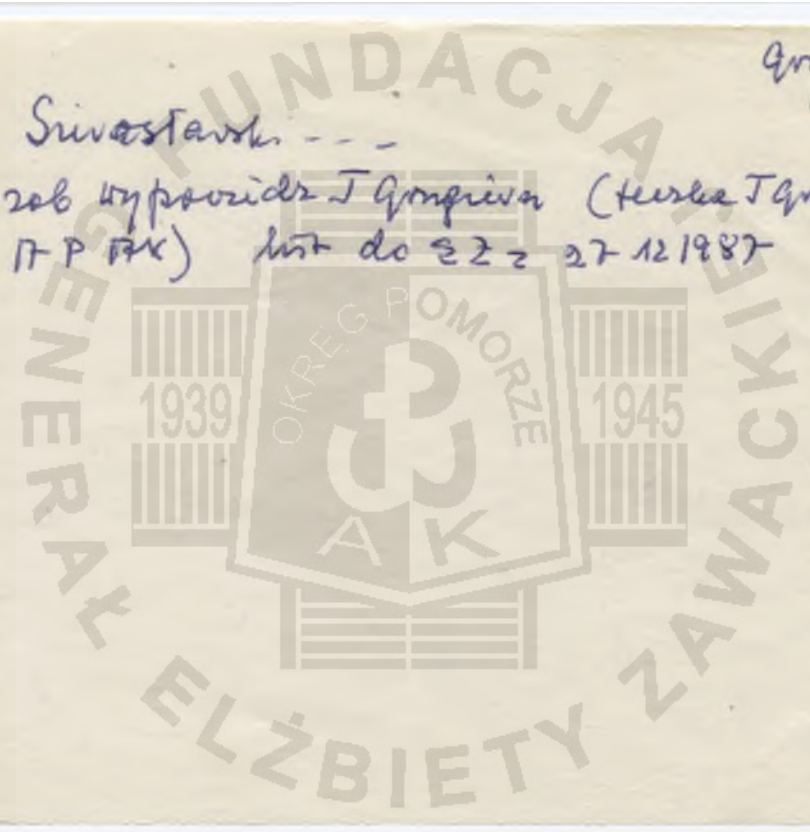 Gr
Surwasławsk. - - -
zob wypowiedź J Gongiewa (teczka J G
AP AK) list do EZ z 27 12 1987
FUNDACJA GENERAŁ ELŻBIETY ZAWACKIEJ
OKRĘG POMORZE
1939
1945
AK